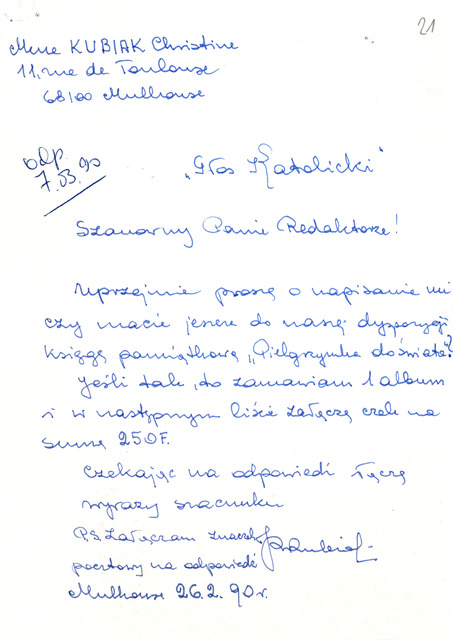 21
Mme KUBIAK Christine
11, rue de Toulouse
68100 Mulhouse
odp
7.03.90
"Głos Katolicki"
Szanowny Panie Redaktorze!
Uprzejmie proszę o napisanie mi
czy macie jeszcze do naszej dyspozycji
Księgę pamiątkową "Pielgrzymka do świata"?
Jeśli tak, to zamawiam 1 album
i w następnym liście załączę czek na
sumę 250F.
Czekając na odpowiedź łączę
wyrazy szacunku
P.S. Załączam znaczek
pocztowy na odpowiedź
Kubiak
Mulhouse 26.2.90r.